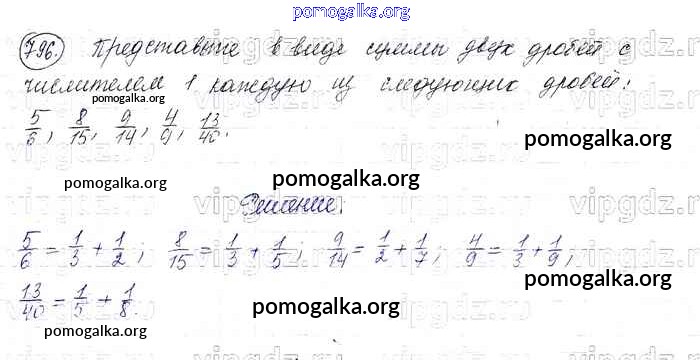 pomogalka.org
796. Представьте в виде суммы двух дробей с
числителем 1 каждую из следующих дробей:
pomogalka.org
5/6, 8/15, 9/14, 4/9, 13/40.
pomogalka.org
pomogalka.org
vipgdz.ru
pomogalka.org
Решение.
5/6 = 1/3 + 1/2; 8/15 = 1/3 + 1/5; 9/14 = 1/2 + 1/7; 4/9 = 1/3 + 1/9;
pomogalka.org
13/40 = 1/5 + 1/8.
pomogalka.org
pomogalka.org